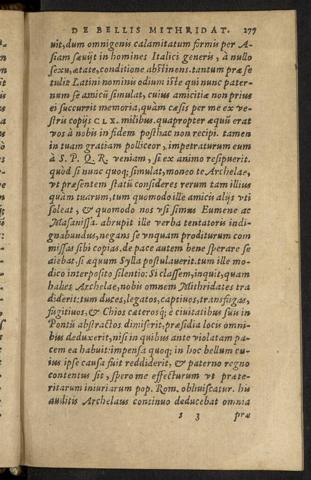 DE BELLIS MITHRIDAT. 277
uit, dum omnigenis calamitatum formis per A-
siam sæuijt in homines Italici generis, à nullo
sexu, ætate, conditione abstinens. tantum præ se
tulit Latini nominis odium iste qui nunc pater-
num se amicũ simulat, cuius amicitiæ non prius
ei succurrit memoria, quàm cæsis per me ex ve-
stris copijs CLX. milibus. quapropter æquũ erat
vos à nobis in fidem posthac non recipi. tamen
in tuam gratiam polliceor, impetraturum eum
à S. P. Q. R. veniam, si ex animo resipuerit.
quòd si nunc quoq; simulat, moneo te Archelae,
vt præsentem statũ consideres rerum tam illius
quàm tuarum, tum quomodo ille amicis alijs vti
soleat, & quomodo nos vsi simus Eumene ac
Masanissa. abrupit ille verba tentatoris indi-
gnabundus, negans se vnquam proditurum com
missas sibi copias. de pace autem bene sperare se
aiebat. si æquum Sylla postulauerit. tum ille mo-
dico interposito silentio: Si classem, inquit, quam
habes Archelae, nobis omnem Mithridates tra
diderit: tum duces, legatos, captiuos, transfugas,
fugitiuos, & Chios cæterosq; è ciuitatibus suis in
Pontũ abstractos dimiserit, præsidia locis omni-
bus deduxerit, nisi in quibus ante violatam pa-
cem ea habuit: impensa quoq; in hoc bellum cu-
ius ipse causa fuit reddiderit, & paterno regno
contentus sit, spero me effecturum vt præte-
ritarum iniuriarum pop. Rom. obliuiscatur. his
auditis Archelaus continuo deducebat omnia
s 3 præ